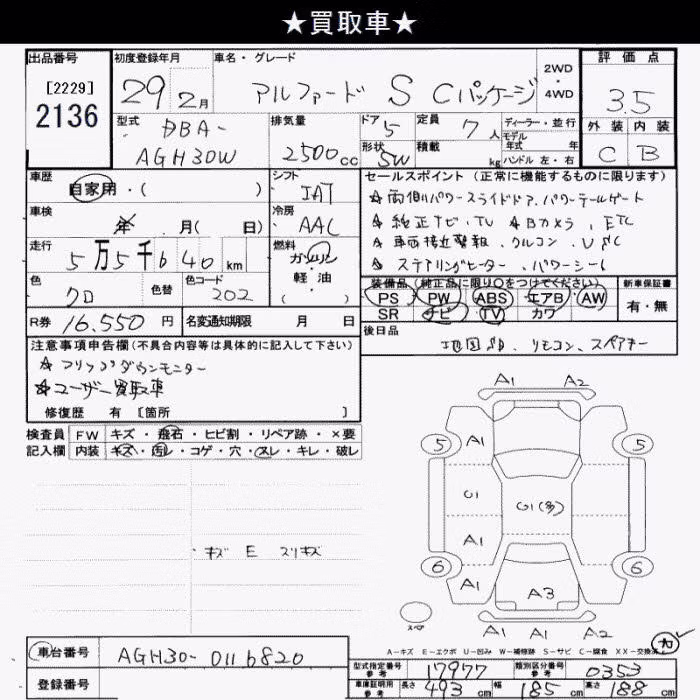 ★買取車★
出品番号
[2229]
2136
初度登録年月
29年 2月
車名・グレード
アルファード S Cパッケージ
2WD
・
4WD
評価点
3.5
外装 内装
C B
型式
DBA-
AGH30W
排気量
2500cc
ドア 5
形状 SW
定員 7人
積載 kg
ディーラー・並行
モデル
年式 年
ハンドル 左・右
車歴
自家用・( )
シフト
IAT
車検
年 月( 日)
冷房
AAC
走行
5万5千640km
燃料
ガソリン
軽・油
( )
色
クロ
色替
色コード
202
R券 16,550円
名変通知期限 月 日
セールスポイント (正常に機能するものに限ります)
☆両側パワースライドドア、パワーテールゲート
☆純正ナビ・TV ☆Bカメラ、ETC
☆車両接近警報、クルコン、
☆ステアリングヒーター、パワーシート
装備品(純正品に限り○をつけてください)
PS PW ABS エアB AW
SR ナビ TV カワ
新車保証書
有・無
後日品
地図SD、リモコン、スペアキー
注意事項申告欄(不具合内容等は具体的に記入して下さい)
☆フリップダウンモニター
☆ユーザー買取車
修復歴 有[箇所 ]
検査員 FW キズ・飛石・ヒビ割・リペア跡・×要
記入欄 内装 キズ・汚レ・コゲ・穴・スレ・キレ・破レ
キズ E スリキズ
A1 A2
5 A1 5
G1 G1(多)
A1
6 A1 A3 6
スペア
A1 A1 A2
A-キズ E-エクボ U-凹み W-補修跡 S-サビ C-腐食 XX-交換済
車台番号 AGH30-0116820
登録番号
型式指定番号
参考
17977
類別区分番号
参考
0353
車庫証明用
参考
長さ 493cm 幅 185cm 高さ 188cm